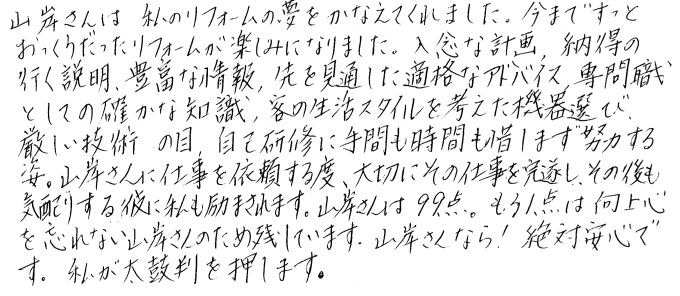 山岸さんは 私のリフォームの夢をかなえてくれました。今まですっと
おっくうだったリフォームが楽しみになりました。入念な計画, 納得の
行く説明、豊富な情報, 先を見通した適格なアドバイス, 専門職
としての確かな知識, 客の生活スタイルを考えた機器選び、
厳しい技術の目, 自己研修に手間も時間も惜します努力する
姿。山岸さんに仕事を依頼する度、大切にその仕事を完遂し, その後も
気配りする彼に私も励まされます。山岸さんは99点。もう1点は向上心
を忘れない山岸さんのため残しています. 山岸さんなら! 絶対安心で
す。私が太鼓判を押します。